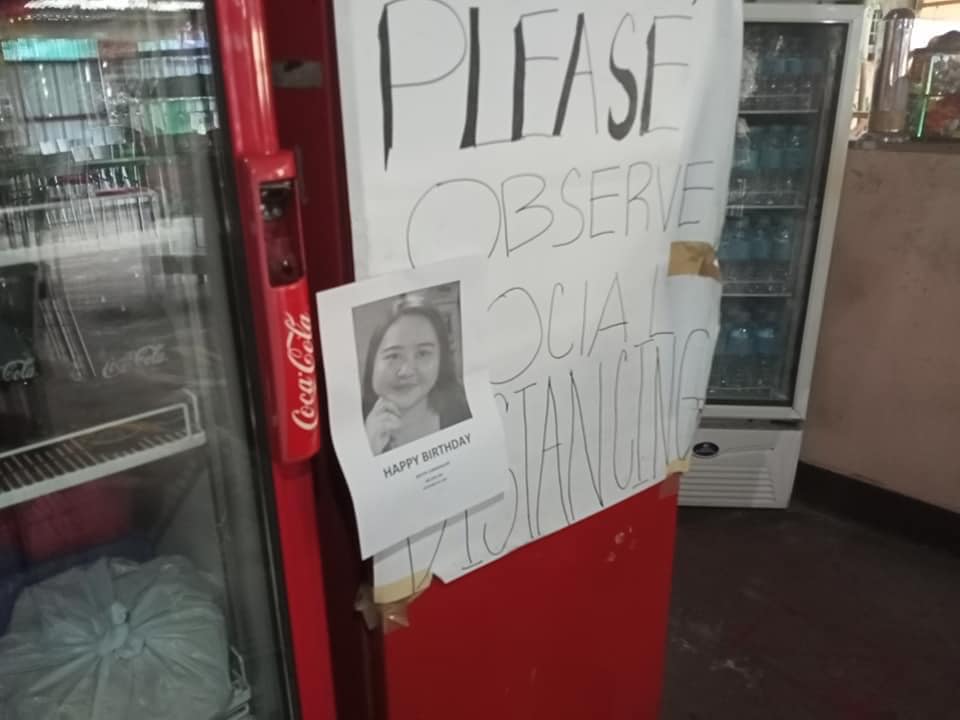 PLEASE
OBSERVE
OCIAL
DISTANCING
HAPPY BIRTHDAY
Coca-Cola
Coca-Cola